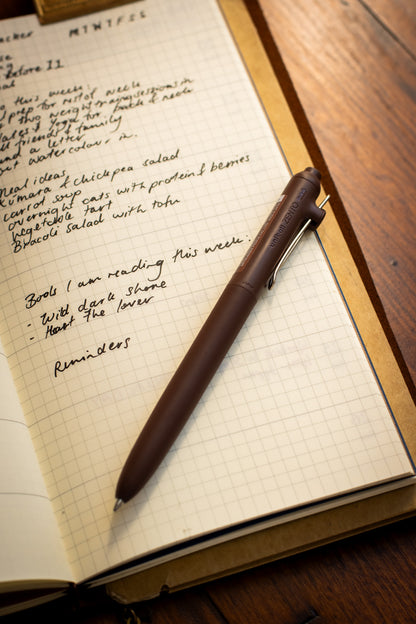 acker
M T W T F S S
Before 11
this week
prep for rest of week
two weight training sessions in
Yoga for back & neck
friends & family
a letter
watercolour in.
Meal ideas
Kumara & chickpea salad
carrot soup
overnight oats with protein & berries
vegetable tart
Brocoli salad with tofu
Books I am reading this week:
- Wild dark shore
- Heart the lover
Reminders